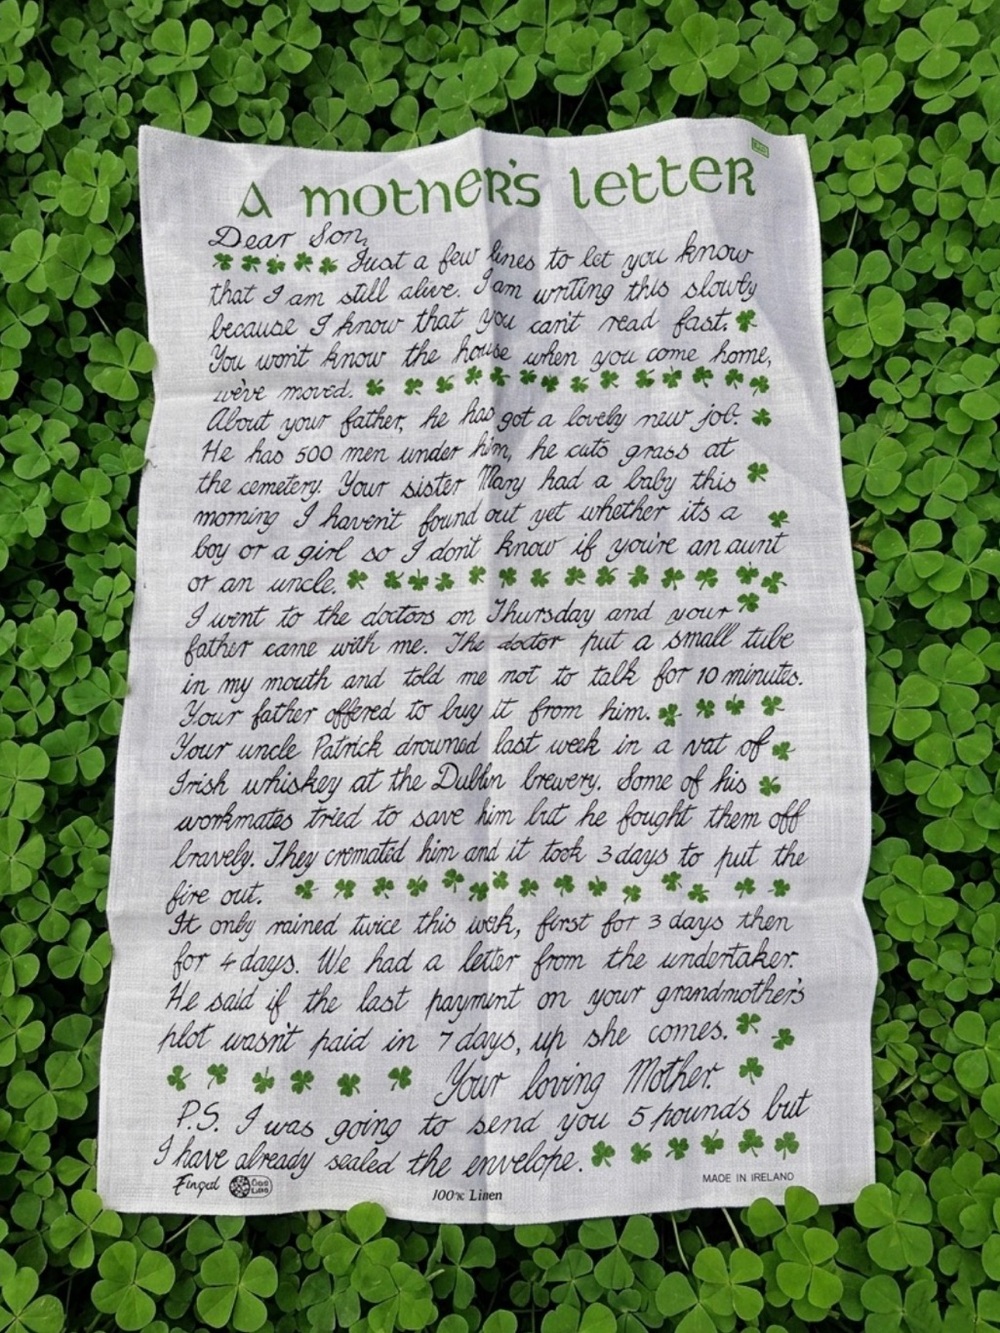 A mother's letter
Dear Son,
Just a few lines to let you know
that I am still alive. I am writing this slowly
because I know that you can't read fast.
You won't know the house when you come home,
we've moved.
About your father, he has got a lovely new job.
He has 500 men under him, he cuts grass at
the cemetery. Your sister Mary had a baby this
morning I haven't found out yet whether its a
boy or a girl so I don't know if you're an aunt
or an uncle.
I went to the doctors on Thursday and your
father came with me. The doctor put a small tube
in my mouth and told me not to talk for 10 minutes.
Your father offered to buy it from him.
Your uncle Patrick drowned last week in a vat of
Irish whiskey at the Dublin brewery. Some of his
workmates tried to save him but he fought them off
bravely. They cremated him and it took 3 days to put the
fire out.
It only rained twice this week, first for 3 days then
for 4 days. We had a letter from the undertaker.
He said if the last payment on your grandmother's
plot wasn't paid in 7 days, up she comes.
Your loving Mother.
P.S. I was going to send you 5 pounds but
I have already sealed the envelope.
Fingal
100% Linen
MADE IN IRELAND